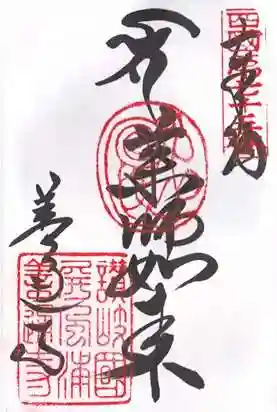 四國第七十五番
薬師如来
善通寺
讃岐國
屏風浦
善通寺